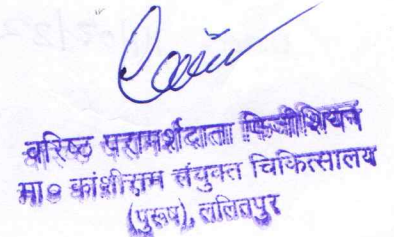 वरिष्ठ परामर्शदाता फिजीशियन
मा० कांशीराम संयुक्त चिकित्सालय
(पुरूष), ललितपुर